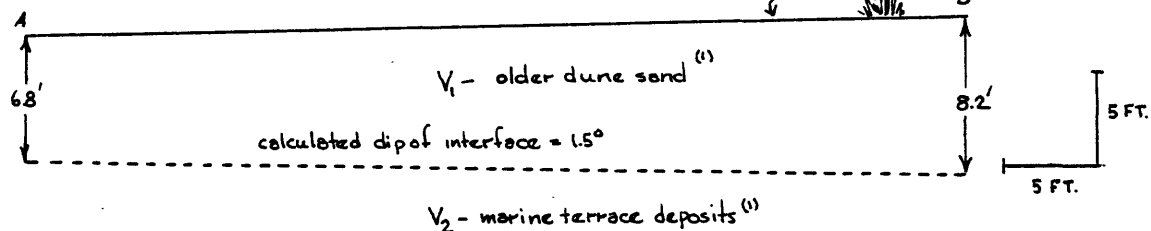 A
V₁ - older dune sand (1)
6.8'
8.2'
5 FT.
calculated dip of interface = 1.5°
5 FT.
V₂ - marine terrace deposits (1)